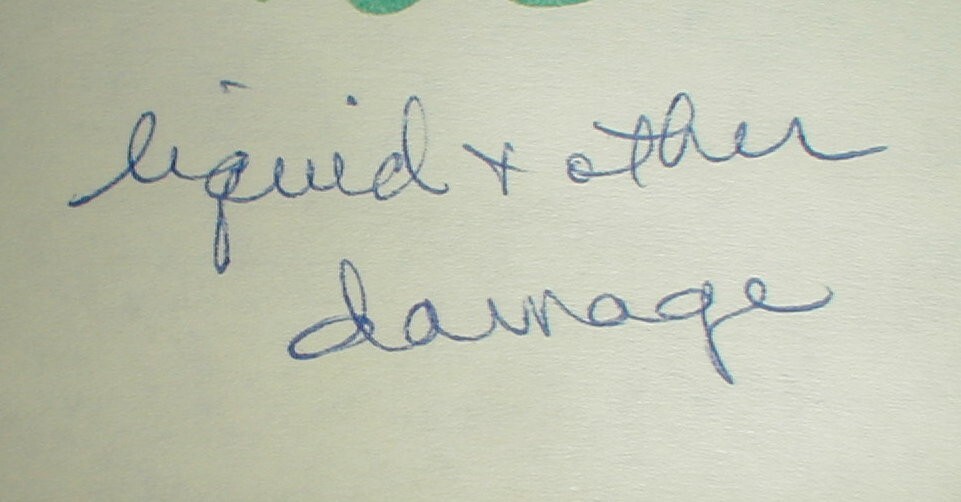 liquid + other
damage